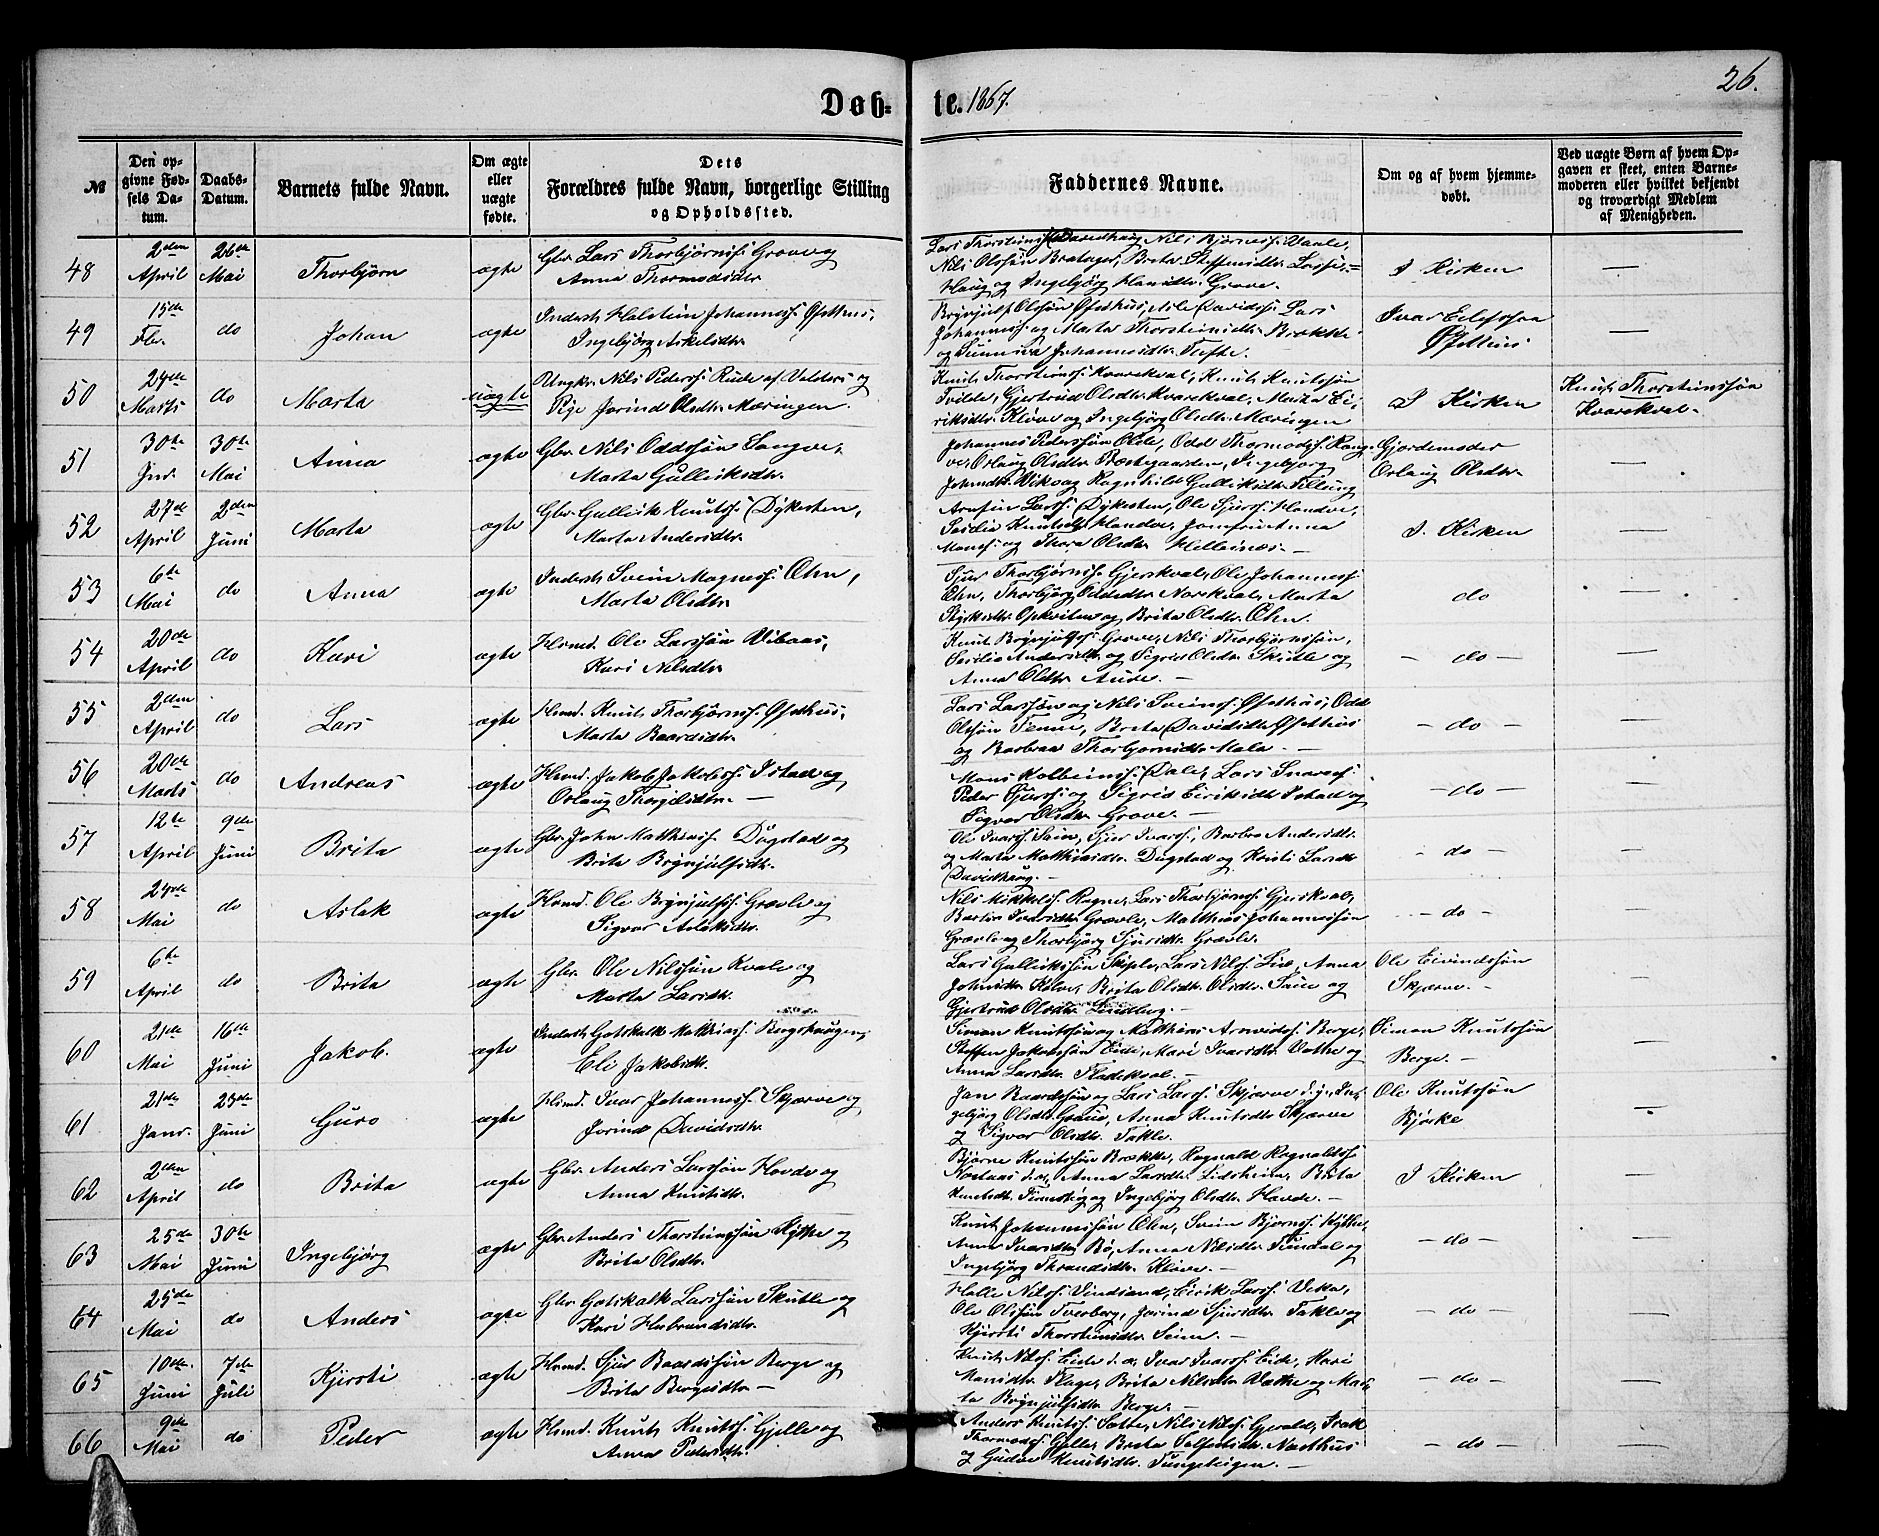 Døb-te. 1867.
26.
№
Den op-
givne Fød-
sels Da-
tum.
Daabs-
Datum.
Barnets fulde Navn.
Om ægte
eller
uægte
fødte.
Dets
Forældres fulde Navn, borgerlige Stilling
og Opholdssted.
Faddernes Navne.
Om og af hvem hjemme-
døbt.
Ved uægte Børn af hvem Op-
gaven er skeet, enten Barne-
moderen eller hvilket bekjendt
og troværdigt Medlem
af Menigheden.
48 2den April 26de Mai Thorbjørn ægte Gbr. Lars Thorbjørnss. Grove og
Anna Thormodsdtr.
Lars Thorsteinss. Davidhaug, Nils Bjørness. Vaale,
Nils Olssøn Bratager, Brita Steffensdtr.
Haug og Ingebjørg Hansdtr. Grove.
I Kirken —
49 15de Fbr. do Johan ægte Inderst Halstein Johanness. Øfsthus,
Ingebjørg Askelsdtr.
Brynjulf Olssøn Øfsthus, Nils Davidss. Lars
Johanness. og Marta Thorsteinsdtr. Brække
og Sunniva Johannesdtr. Tufte.
Ivar Eilefssøn
Øfsthus —
50 24de Marts do Marta uægte Ungkr. Nils Pederss. Rude af Valders og
Pige Jorind Olsdtr. Mæringen.
Knut Thorsteinss. Kvarekval, Knut Knutssøn
Tvilde, Gjertrud Olsdtr. Kvarekval, Marta Ei-
riksdtr. Kløve og Ingebjørg Olsdtr. Mæringen
I Kirken
Knut Thorsteinssøn
Kvarekval.
51 30te Jnr. 30te Mai Anna ægte Gbr. Nils Oddssøn Saugve,
Marta Gulleiksdtr.
Johannes Pederssøn Olde, Odd Thormodss. Raug-
ve, Orlaug Olsdtr. Præstegaarden, Ingebjørg
Johnsdtr. Wik og Ragnhild Gulleiksdtr. Tillung
Gjordemoder
Orlaug Olsdtr. —
52 27de April 2den Juni Marta ægte Gbr. Gulleik Knutss. Dykesten,
Marta Andersdtr.
Arnfin Larss. Dykesten, Ole Sjurss. Handve,
Sesilia Knutsdtr. Handve, Jomfru Anna
Monss. og Thora Olsdtr. Helleines. —
I. Kirken —
53 6te Mai do Anna ægte Inderst Svein Magness. Ohn,
Marta Olsdtr.
Sjur Thorbjørnss. Gjerskval, Ole Johanness.
Ohn, Thorbjørg Marta
Styrksdtr. Opkviten og Brita Olsdtr. Ohn.
do —
54 20de April do Kari ægte Hsmd. Ole Larssøn Vibaas,
Kari Nilsdtr.
Knut Brynjulfss. Grove, Nils Thorbjørnssøn,
Sesilia Andersdtr. og Sigrid Olsdtr. Skutle og
Anna Olsdtr. Aude. —
— do — —
55 2den April do Lars ægte Hsmd. Knut Thorbjørnss. Øfsthus,
Marta Baardsdtr.
Lars Larssøn og Nils Sveinss. Øfsthus, Odd
Olssøn Tenne, Brita Davidsdtr. Øfsthus
og Barbraa Thorbjørnsdtr. Mala. —
— do — —
56 20de Marts do Andreas ægte Hsmd. Jakob Jakobss. Istad og
Orlaug Thorgilsdtr. —
Mons Kolbeinss. Dale, Lars Snaress.
Peder Sjurss. og Sigrid Eiriksdtr. Istad og
Sigvor Olsdtr. Grove. —
— do — —
57 12te April 9de Juni Brita ægte Gbr. John Matthiass. Dugstad og
Brita Brynjulfsdtr.
Ole Ivarss. Seim, Sjur Ivarss., Barbro Andersdtr.
og Marta Matthiasdtr. Dugstad og Kristi Larsdtr.
Davidhaug. —
— do — —
58 24de Mai do Aslak ægte Hsmd. Ole Brynjulfss. Grævle og
Sigvor Aslaksdtr.
Nils Mikkelss. Rogne, Lars Thorbjørnss. Gjerskval,
Ivarsdtr. Grævle, Matthias Johannessøn
Grævle og Thorbjørg Sjursdtr. Grævle.
— do — —
59 6te April do Brita ægte Gbr. Ole Nilssøn Kvale og
Marta Larsdtr.
Lars Gulleikssøn Skiple, Lars Nilss. Anna
Johnsdtr. Brita Olsdtr. Olsdtr. og
Gjertrud Olsdtr. Lindberg. —
Ole Eivindssøn
Skjærve. — —
60 21de Mai 16de Juni Jakob. ægte Inderst Gotskalk Matthiass. Bergshaugen,
Eli Jakobsdtr.
Simon Knutssøn og Matthias Arnvidss. Berge,
Steffen Jakobssøn Eide, Mari Ivarsdtr. Væthe og
Anna Larsdtr. Flatekval. —
Simon Knutssøn
Berge. — —
61 21de Janr. 23de Juni Guro ægte Hsmd. Ivar Johanness. Skjærve og
Jorind Davidsdtr.
Jan Baardssøn og Lars Larss. Skjærve d. y., In-
gebjørg Olsdtr. Graue, Anna Knutsdtr. Skjærve
og Sigvor Olsdtr. Takle.
Ole Knutssøn
Bjørke —
62 2den April do Brita ægte Gbr. Anders Larssøn Hovde og
Anna Knutsdtr.
Bjørne Knutssøn Brække, Ragnald Ragnaldss.
Nestaas d. æ., Anna Larsdtr. Lidsheim, Brita
Knutsdtr. Finnstig og Ingebjørg Olsdtr. Hovde. —
I Kirken —
63 25de Mai 30te Juni Ingebjørg ægte Gbr. Anders Thorsteinssøn Kythe og
Brita Olsdtr.
Knut Johannessøn Ohn, Svein Bjørness. Kythe,
Anna Ivarsdtr. Bø, Anna Nilsdtr. Fundal og
Ingebjørg Throndsdtr. Kløve. —
— do — —
64 25de Mai do Anders ægte Gbr. Gotskalk Larssøn Skutle og
Kari Hæbrandsdtr.
Halle Nilss. Vindsand, Eirik Larss. Veka,
Ole Olssøn Tverberg, Jorind Sjursdtr. Takle og
Kjersti Thorsteinsdtr. Seim. —
— do — —
65 10de Juni 7de Juli Kjersti ægte Hsmd. Sjur Baardssøn Berge og
Brita Bergesdtr. —
Knut Nilss. Eide d. æ., Ivar Ivarss. Eide, Mari
Monsdtr. Flage, Brita Nilsdtr. Væthe og Mar-
ta Brynjulfsdtr. Berge. —
— do — —
66 9de Mai do Peder ægte Hsmd. Knut Knutss. Gjelle og
Anna Pedersdtr.
Anders Knutss. Sætte, Nils Nilss. Isak
Thormodss. Gjelle, Brita Nesthus
og Gudve Knutsdtr. Tungeteigen. —
— do — —